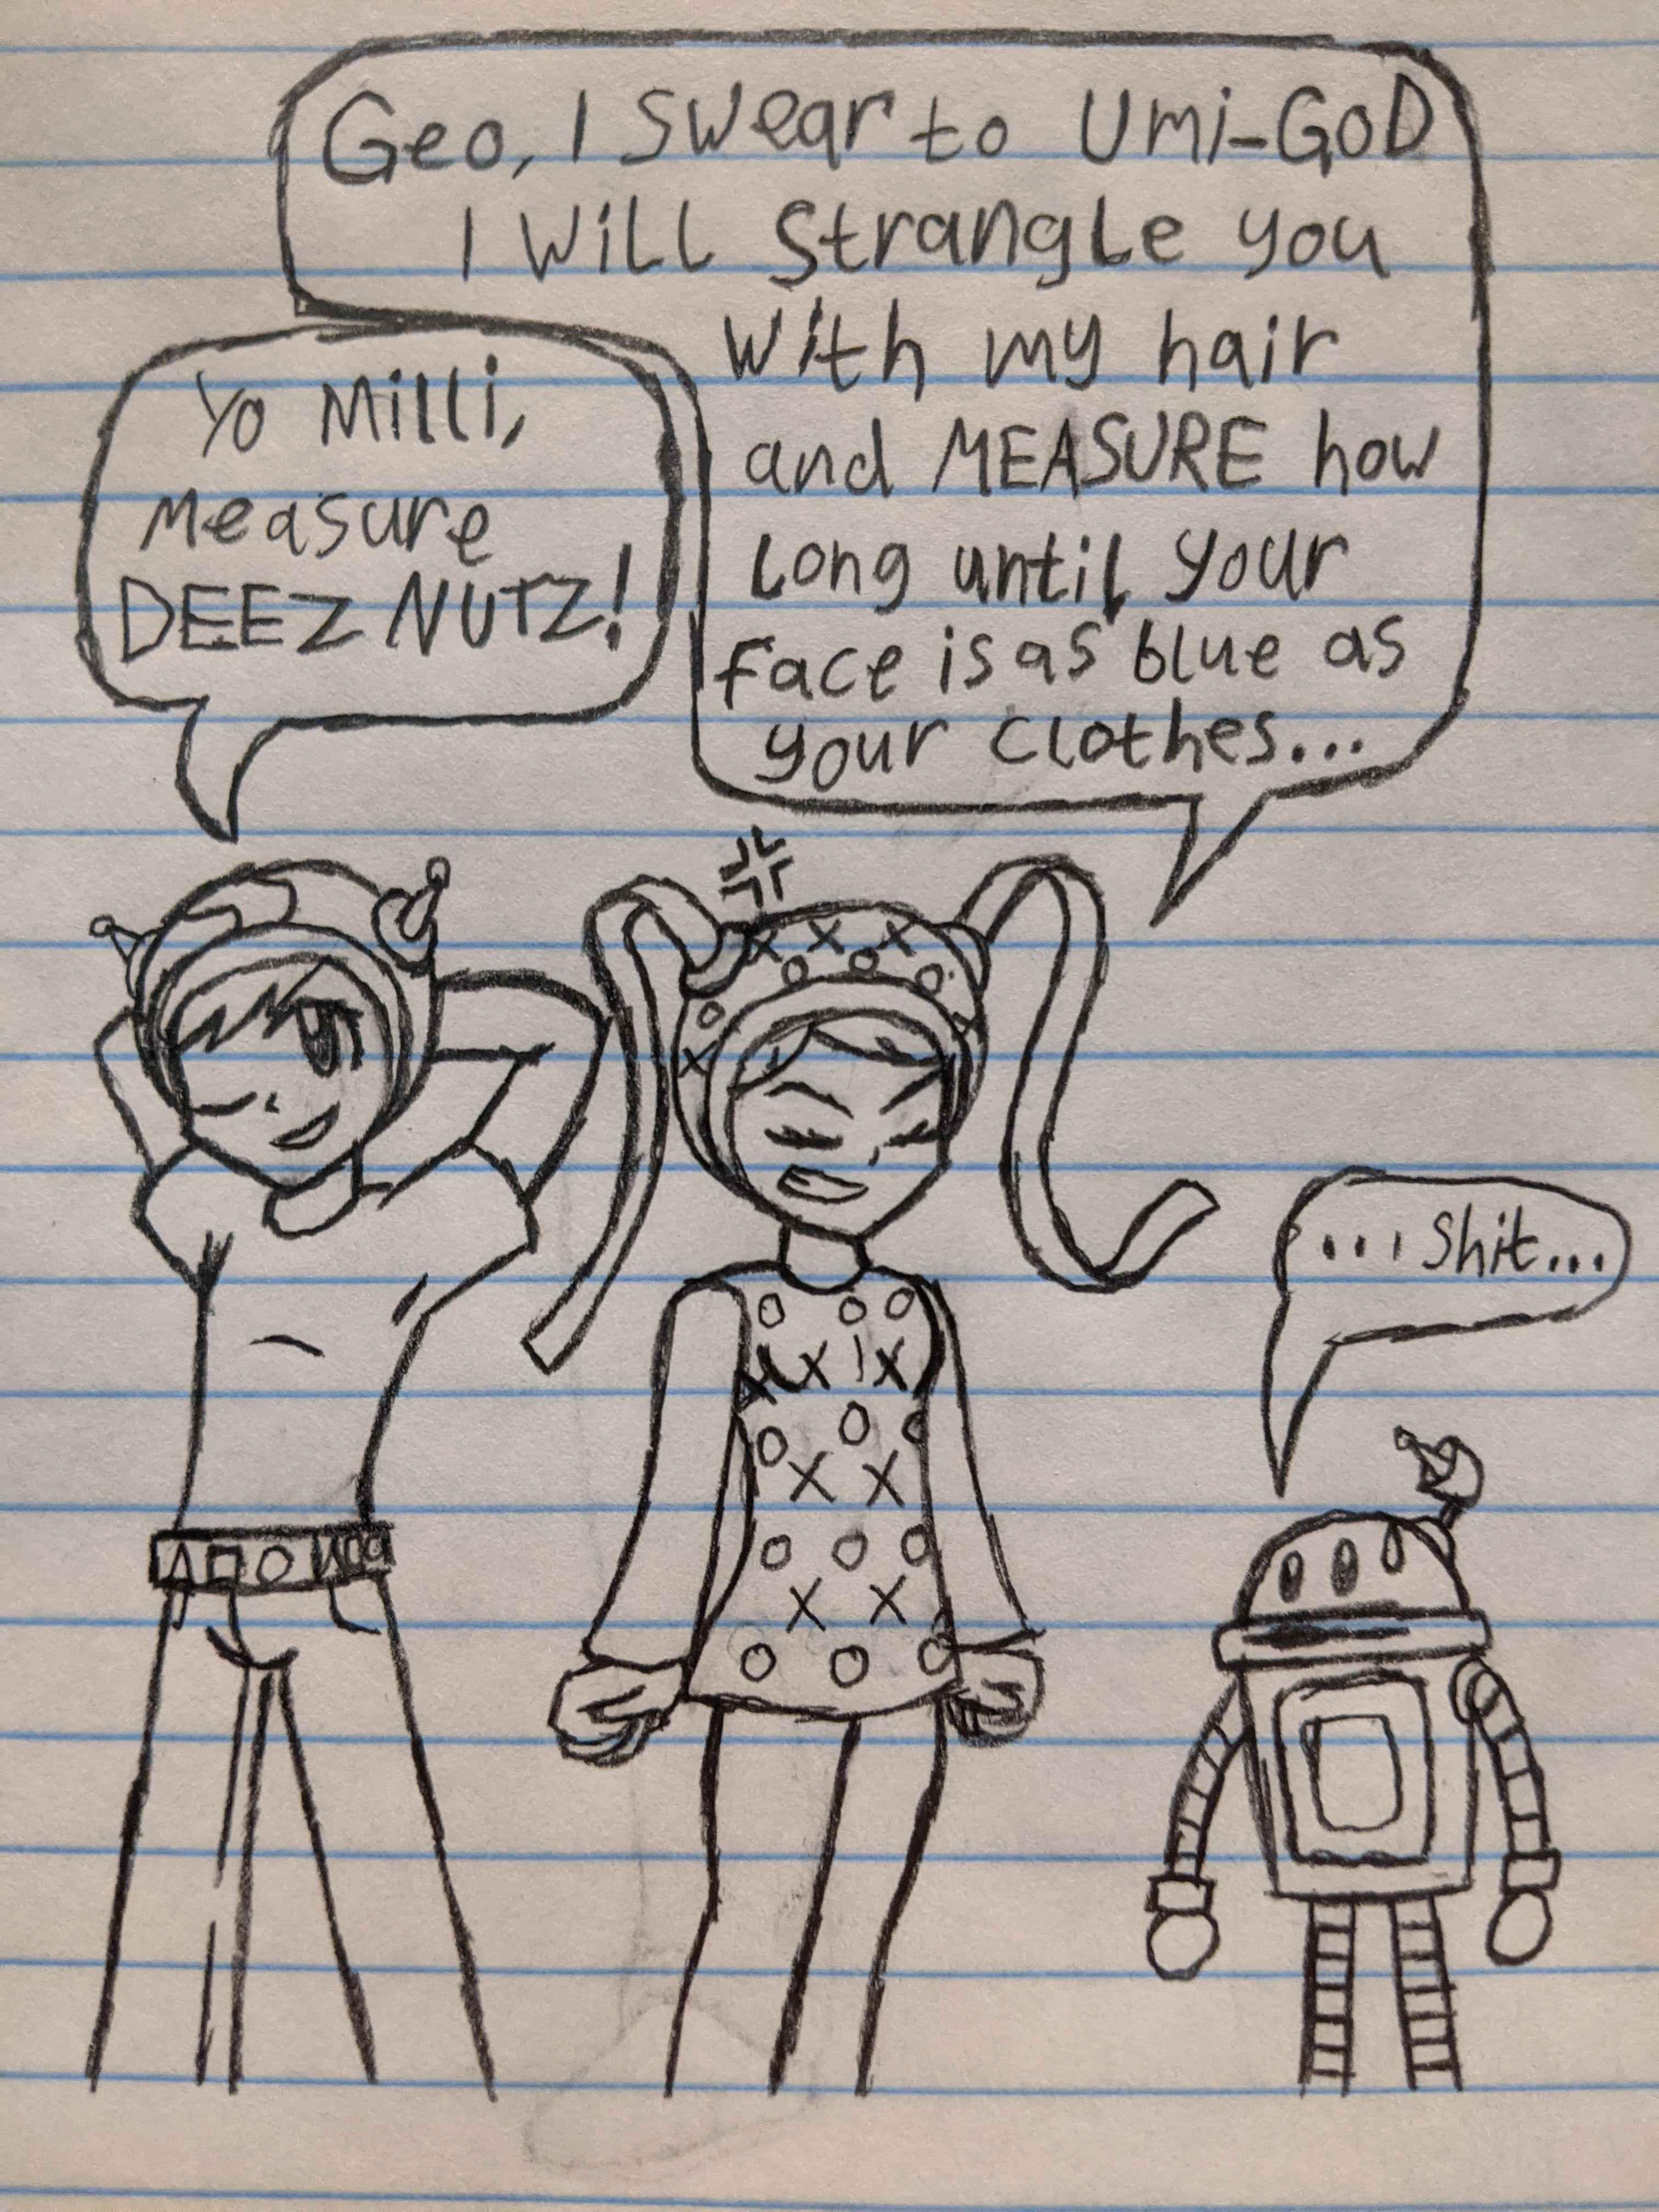 Yo Milli,
measure
DEEZ NUTZ!
Geo, I swear to Umi-GOD
I Will Strangle you
With my hair
and MEASURE how
Long until your
Face is as blue as
your Clothes...
...Shit...